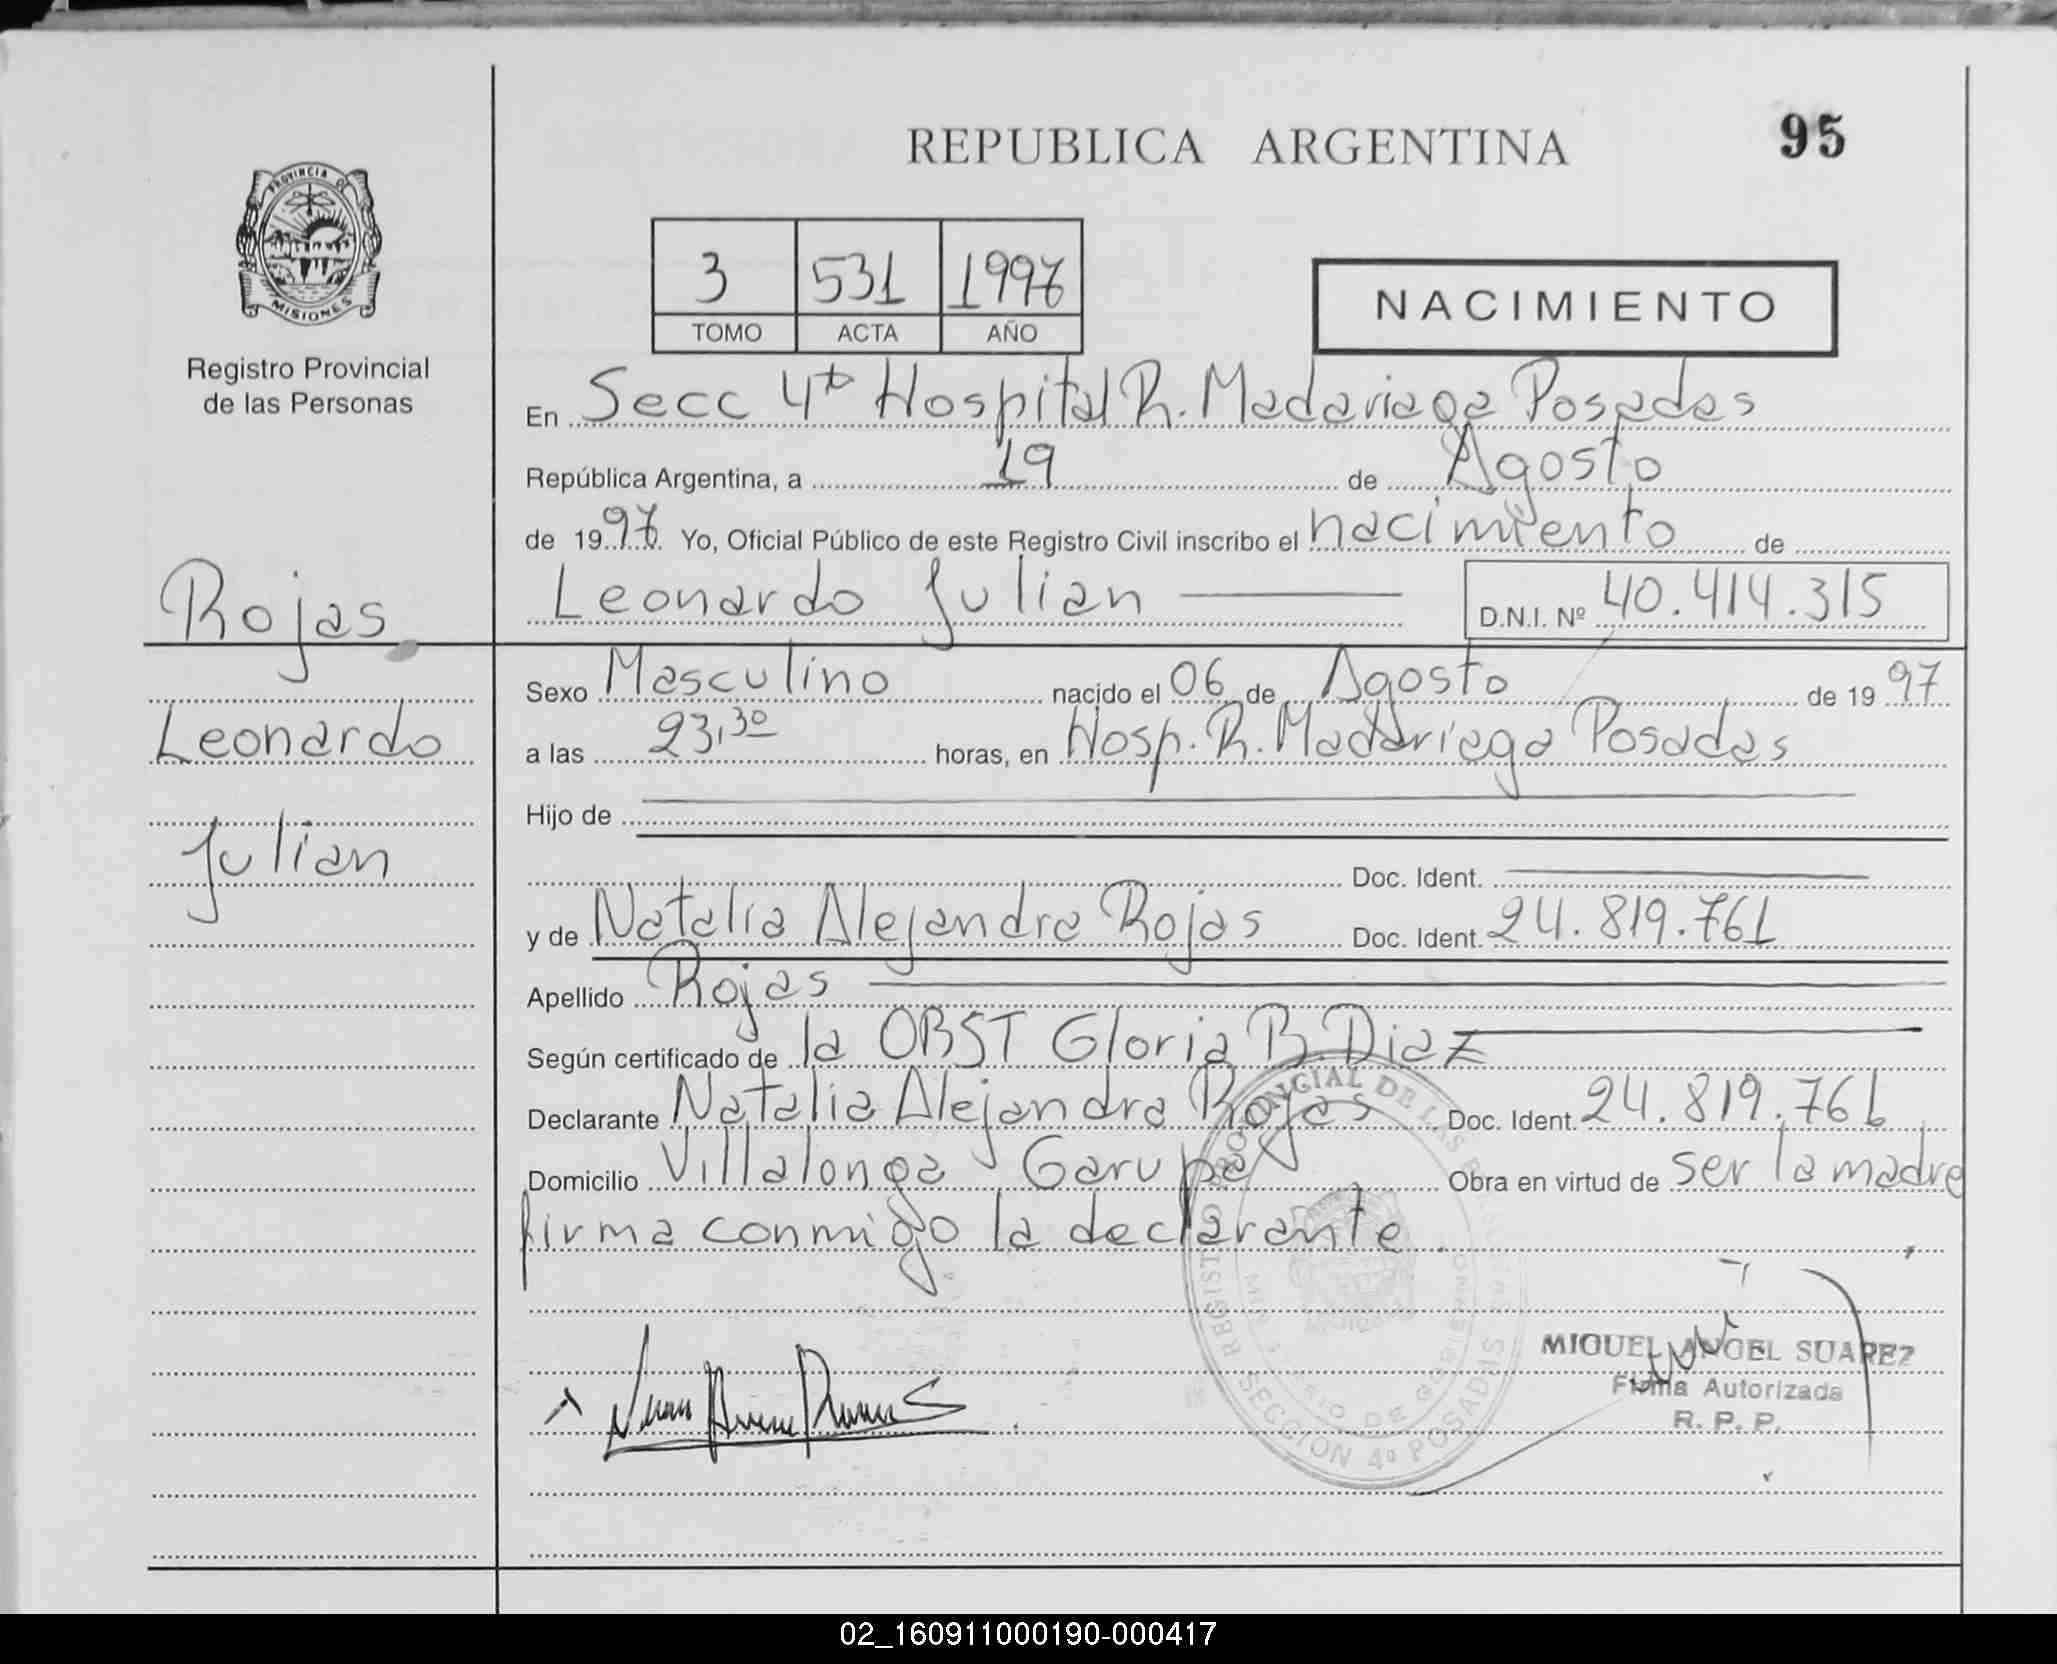 REPUBLICA ARGENTINA
95
PROVINCIA DE
MISIONES
Registro Provincial
de las Personas
3 531 1997
TOMO ACTA AÑO
NACIMIENTO
En Secc 4ta Hospital R. Madariaga Posadas
República Argentina, a 19 de Agosto
de 1997. Yo, Oficial Público de este Registro Civil inscribo el nacimiento de
Leonardo Julian
D.N.I. Nº 40.414.315
Rojas
Leonardo
Julian
Sexo Masculino nacido el 06 de Agosto de 1997
a las 23,30 horas, en Hosp. R. Madariaga Posadas
Hijo de
Doc. Ident.
y de Natalia Alejandra Rojas Doc. Ident. 24.819.761
Apellido Rojas
Según certificado de la OBST Gloria B. Diaz
Declarante Natalia Alejandra Rojas Doc. Ident. 24.819.761
Domicilio Villalonga Garupa Obra en virtud de ser la madre
firma conmigo la declarante.
REGISTRO PROVINCIAL DE LAS PERSONAS
MINISTERIO DE GOBIERNO
SECCION 4º POSADAS
MIGUEL ANGEL SUAREZ
Firma Autorizada
R. P. P.
02_160911000190-000417